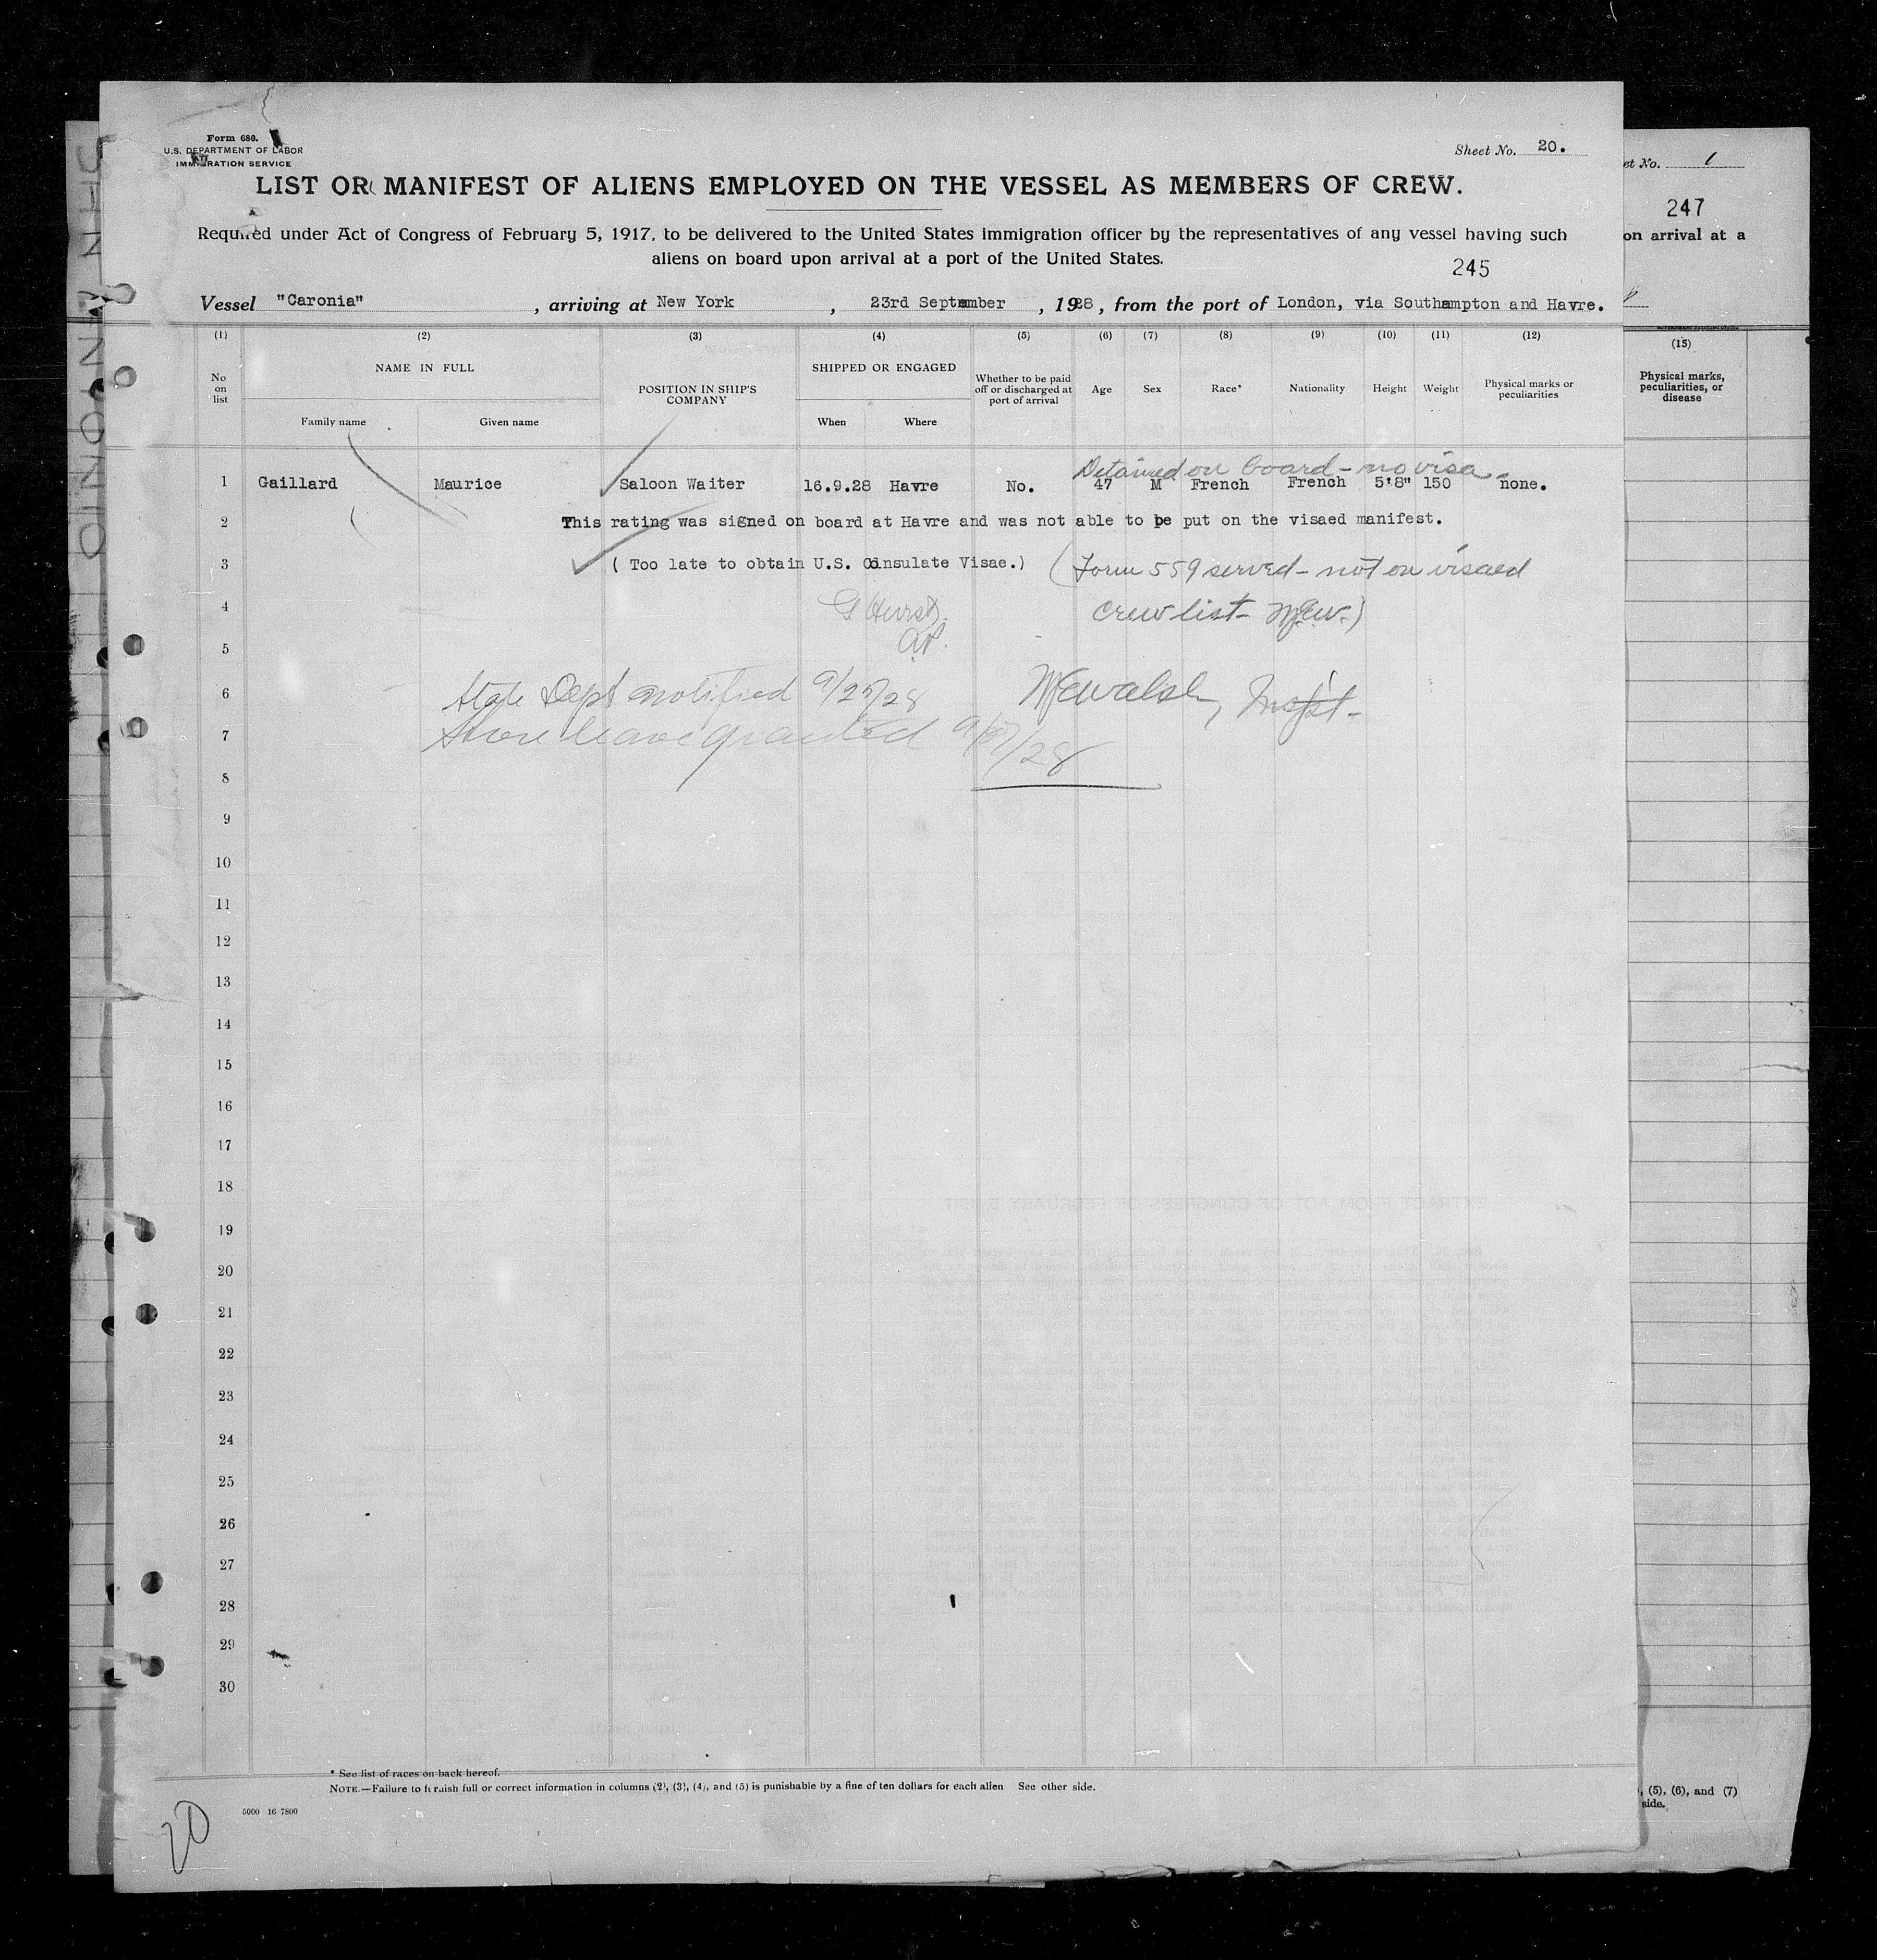 Form 680.
U.S. DEPARTMENT OF LABOR
IMMIGRATION SERVICE
Sheet No. 20.
LIST OR MANIFEST OF ALIENS EMPLOYED ON THE VESSEL AS MEMBERS OF CREW.
Required under Act of Congress of February 5, 1917, to be delivered to the United States immigration officer by the representatives of any vessel having such
aliens on board upon arrival at a port of the United States.
245
Vessel "Caronia", arriving at New York, 23rd September, 1928, from the port of London, via Southampton and Havre.
(1) (2) (3) (4) (5) (6) (7) (8) (9) (10) (11) (12)
No on list
NAME IN FULL
Family name Given name
POSITION IN SHIP'S COMPANY
SHIPPED OR ENGAGED
When Where
Whether to be paid off or discharged at port of arrival
Age Sex Race* Nationality Height Weight
Physical marks or peculiarities
Detained on board - no visa
1 Gaillard Maurice Saloon Waiter 16.9.28 Havre No. 47 M French French 5'8" 150 none.
2 This rating was signed on board at Havre and was not able to be put on the visaed manifest.
3 ( Too late to obtain U.S. Consulate Visae.) (Form 559 served - not on visaed
4 G Hurst crew list - W.E.W.)
5
6 State Dept notified 9/25/28 W E Walsh, Inspt.
7 Shore leave granted 9/27/28
8
9
10
11
12
13
14
15
16
17
18
19
20
21
22
23
24
25
26
27
28
29
30
* See list of races on back hereof.
NOTE.—Failure to furnish full or correct information in columns (2), (3), (4), and (5) is punishable by a fine of ten dollars for each alien See other side.
5000 16-7800
20
et No. 1
247
on arrival at a
(15)
Physical marks, peculiarities, or disease
, (5), (6), and (7)
side.